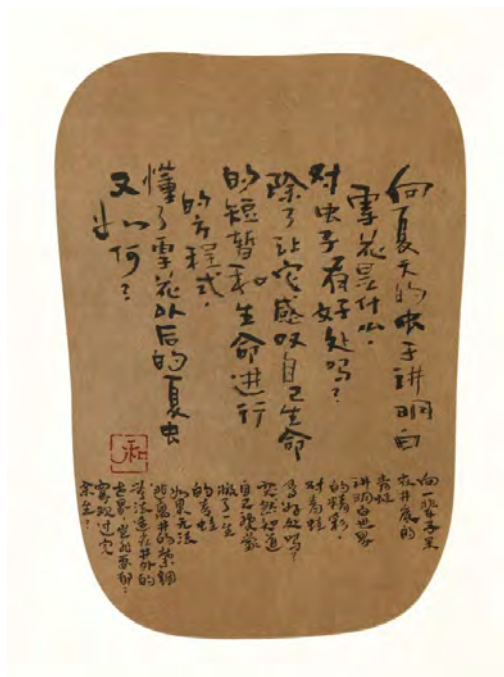 向夏天的虫子讲明白
雪花是什么.
对虫子有好处吗？
除了让它感叹自己生命
的短暂和生命进行
的方程式.
懂了雪花以后的夏虫
又如何？
和
向一辈子呆
在井底的
青蛙
讲明白世界
的精彩.
对青蛙
有好处吗？
突然知道
自己被蒙
蔽了一生
的青蛙
如果无法
逃离井的禁锢
无法逃去井外的
世界.岂非要郁々
寡欢过完
余生？